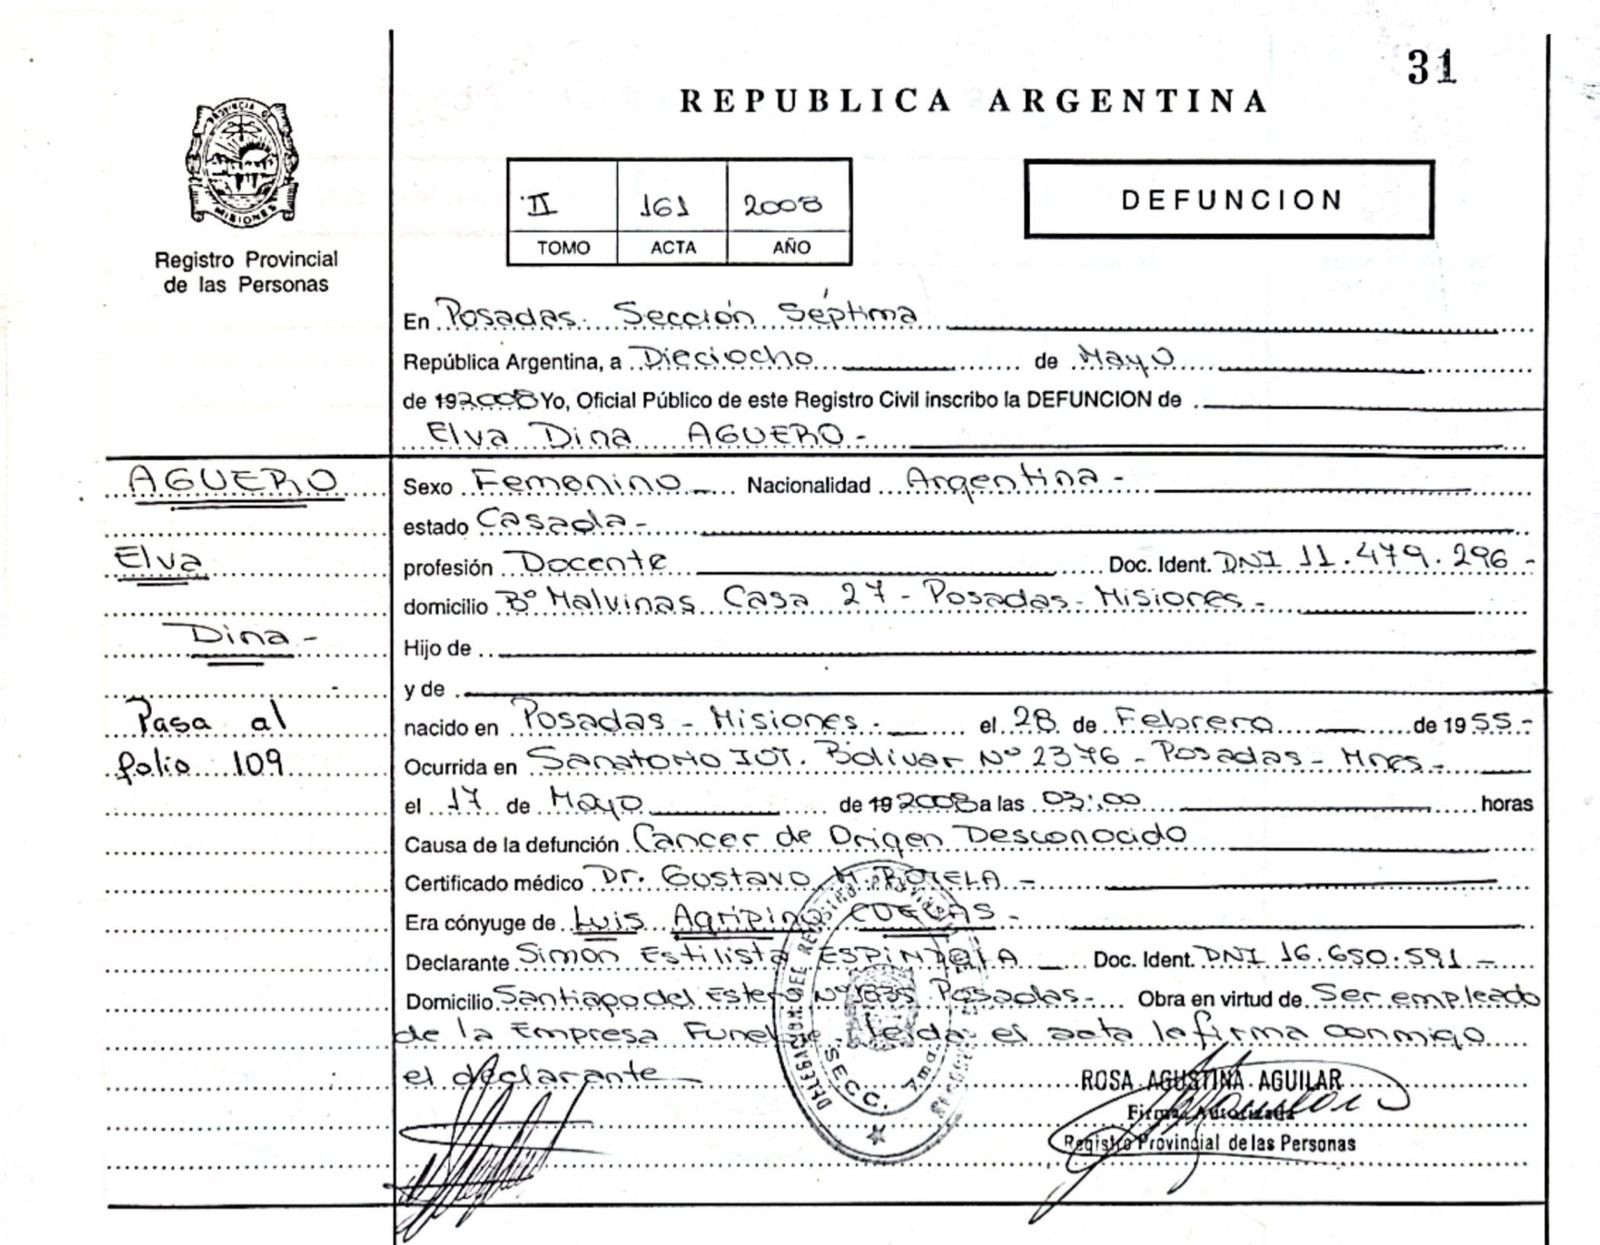 31
REPUBLICA ARGENTINA
PROVINCIA D
MISIONES
Registro Provincial
de las Personas
II 161 2008
TOMO ACTA AÑO
DEFUNCION
En Posadas. Sección Séptima
República Argentina, a Dieciocho de Mayo
de 192008 Yo, Oficial Público de este Registro Civil inscribo la DEFUNCION de
Elva Dina AGUERO-
AGUERO
Elva
Dina-
Pasa al
folio 109
Sexo Femenino Nacionalidad Argentina-
estado Casada-
profesión Docente Doc. Ident. DNI 11.479.296-
domicilio Bº Malvinas Casa 27-Posadas-Misiones-
Hijo de
y de
nacido en Posadas-Misiones- el 28 de Febrero de 1955-
Ocurrida en Sanatorio IOT. Bolivar Nº 2376-Posadas-Mnes-
el 17 de Mayo de 192008 a las 03:00 horas
Causa de la defunción Cancer de Origen Desconocido
Certificado médico Dr. Gustavo
Era cónyuge de Luis Agripino CUEVAS-
Declarante Simón Estilista ESPINDOLA Doc. Ident. DNI 16.650.591-
Domicilio Santiago del Estero Nº Posadas- Obra en virtud de Ser empleado
de la Empresa leída el acta la firma conmigo
el declarante
DELEGACION DEL REGISTRO PROVINCIAL
SECC. 7ma.
ROSA AGUSTINA AGUILAR
Firma Autorizada
Registro Provincial de las Personas